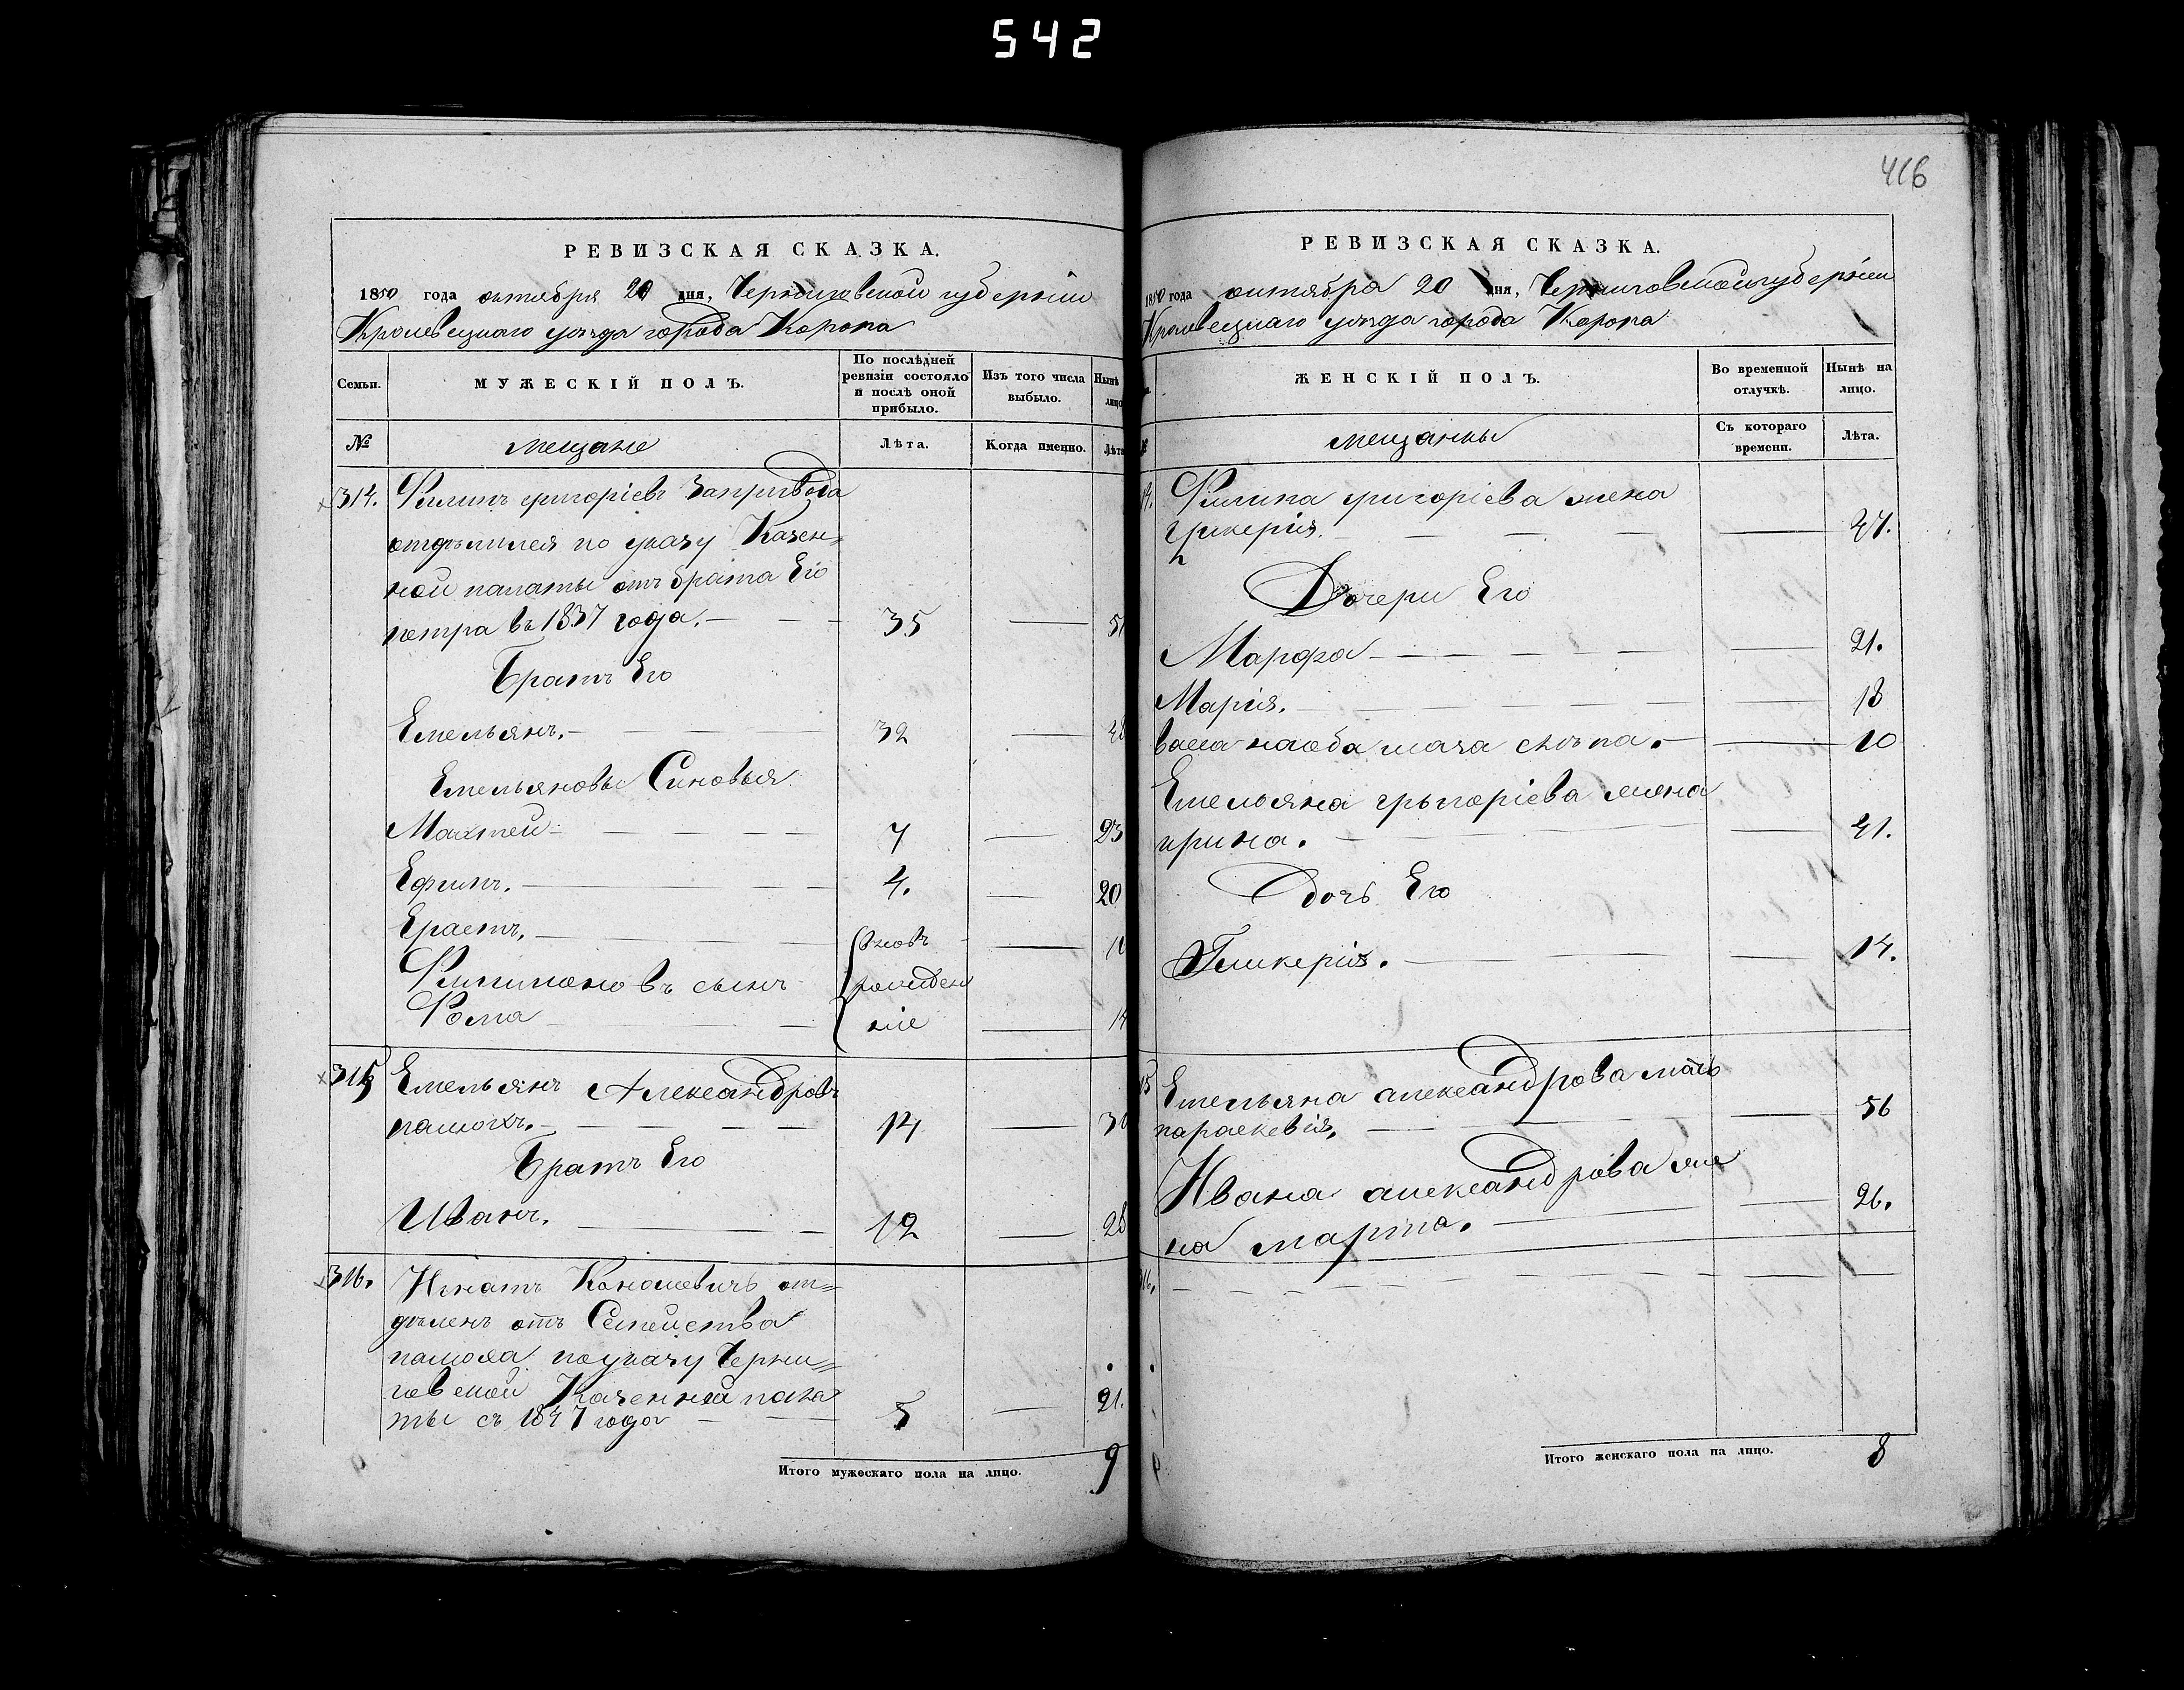 542
416
РЕВИЗСКАЯ СКАЗКА.
1850 года октября 20 дня, Черниговской губернии
Кролевецкаго уезда города Коропа
Семьи.
МУЖЕСКІЙ ПОЛЪ.
По послѣдней ревизіи состояло и послѣ оной прибыло.
Изъ того числа выбыло.
Нынѣ лицо
№
мещане
Лѣта.
Когда именно.
Лѣта
314. Филипъ григоріевъ Запривода
отделился по указу Казен=
ной палаты отъ брата Его
петра въ 1837 года. 35 51
Братъ Его
Емельянъ. 32 48
Емельяновы Синовья
Матвей 7 23
Ефимъ. 4. 20
Ерастъ. вновъ
сынъ рожден
Фома ніе 14
315 Емельянъ Александровъ
14 30
Братъ Его
Иванъ. 12 28
316. Игнатъ от=
деленъ отъ Семейства
по указу Черни=
говской Казенной пала
ты съ 1847 года 5 21.
Итого мужескаго пола на лицо. 9
РЕВИЗСКАЯ СКАЗКА.
1850 года октября 20 дня, Черниговской губерніи
Кролевецкаго уезда города Коропа
ЖЕНСКІЙ ПОЛЪ.
Во временной отлучкѣ.
Нынѣ на лицо.
мещанки
Съ котораго времени.
Лѣта.
Филипа григоріева жена
47.
Дочери Его
Марфа 21.
Марія. 18
10
Емельяна григоріева жена
ирина. 41.
дочь Его
Гликерія. 14.
15 Емельяна александрова мать
параскевія. 56
Ивана александрова же
на марfа. 26.
16.
Итого женскаго пола на лицо. 8